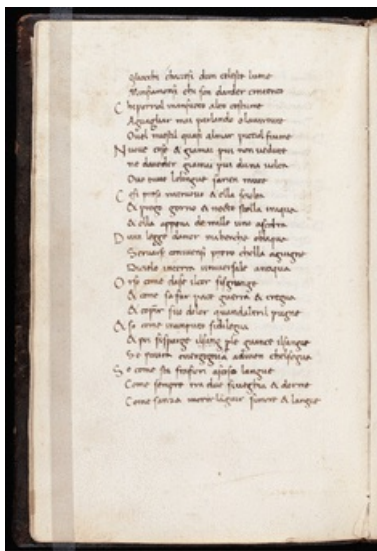 Gliocchi chaccesi dun celeste lume
Minfiamansi chi son darder contento
C hi porral mansueto alto costume
Aguagliar mai parlando o la vertute
Ovel miostil quasi almar picciol fiume
N uove cose & giamai piu non vedute
ne daveder giamai piu duna volta
Ove tutte lelingue sarien mute
C osi preso mitrovo & ella sciolta
Et prego giorno & nocte stella iniqua
& ella appena di mille uno ascolta
D ura legge damor mabenche obliqua
Servarsi conviensi pero chella agiugne
Di cielo interra universale antiqua
O rso come dase ilcor sisgiugne
& come sa far pace guerra & tregua
& coprir suo dolor quandaltri il pugne
& so come inunpunto sidilegua
& poi sisparge per le guance ilsangue
Se paura overgogna advien chelsegua
S o come sta trafiori ascoso langue
Come sempre tra due sivegghia & dorme
Come sanza languir simore & langue